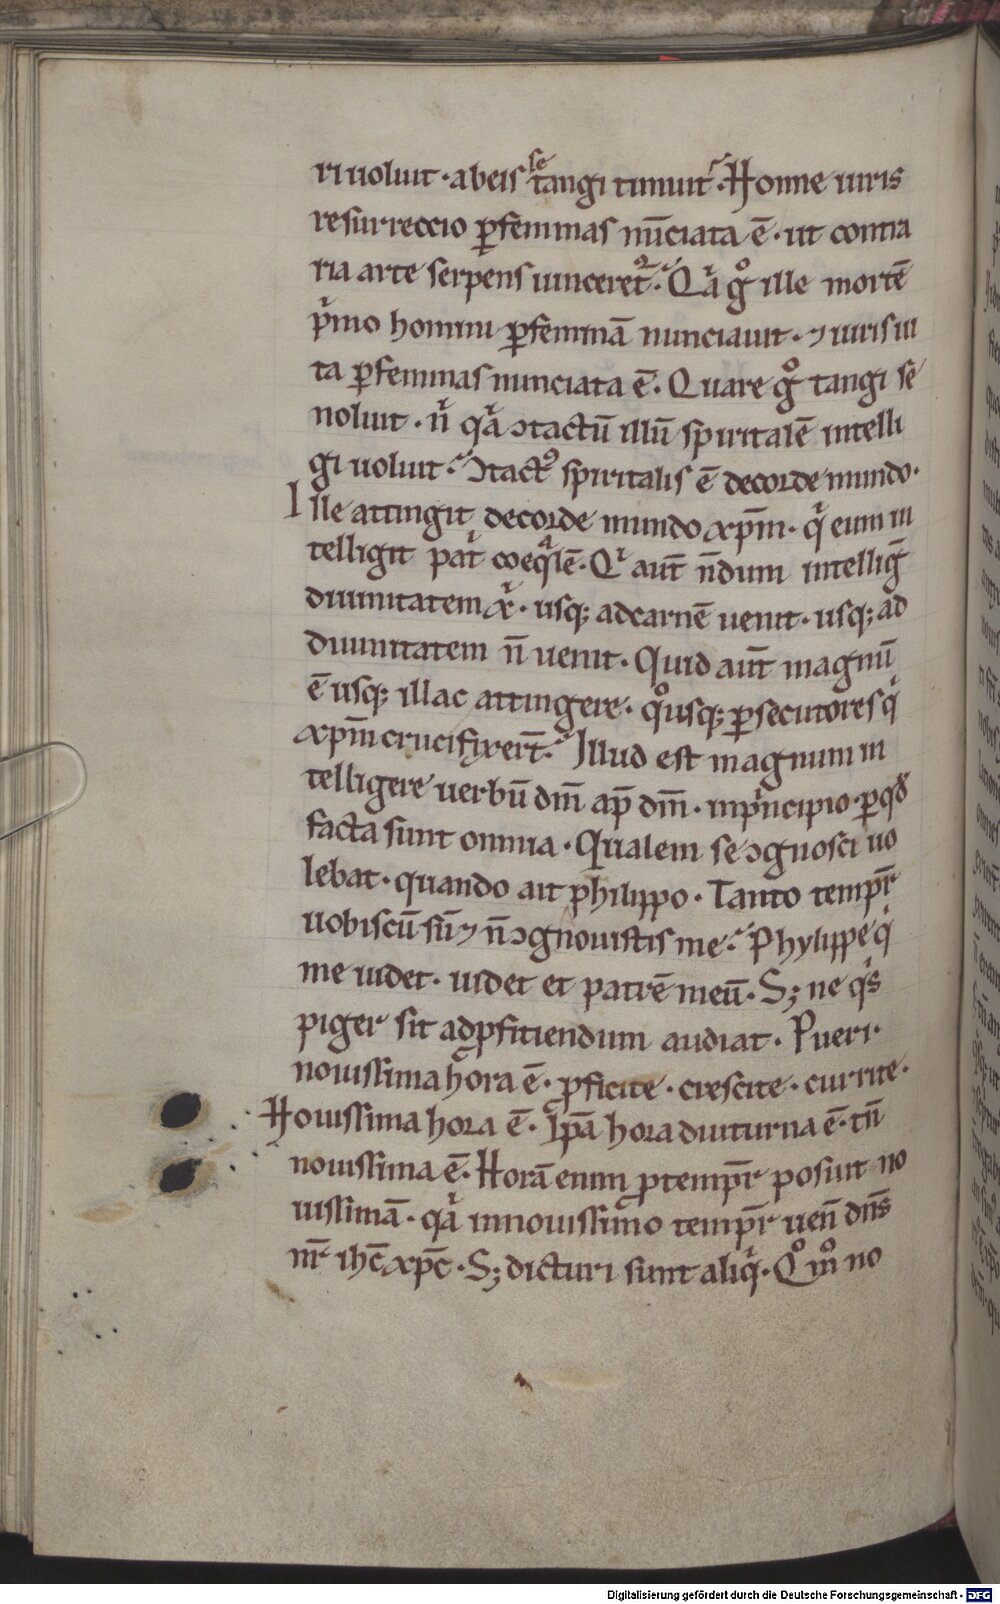 ri uoluit · ab eis se tangi timuit · Nonne uiris
resurreccio ꝑ feminas nūciata ē · ut contra
ria arte serpens uinceret᷑ · Qͥa gͦ ille mortē
pͥmo homini ꝑ feminā nunciauit · ⁊ uiris ui
ta ꝑ feminas nunciata ē · Quare gͦ tangi se
noluit · nͥ qͥa ↄtactū illū spiritalē intelli
gi uoluit · ↄtactꝰ spiritalis ē de corde mundo ·
Ille attingit de corde mundo xp̄m · qͥ eum in
telligit pat̄i coeqͣlē · Qͥ aut̄ n̄dum intelliḡ
diuinitatem xͥ · usq; ad carnē uenit · usq; ad
diuinitatem n̄ uenit · Quid aut̄ magnū
ē usq; illac attingere · qͦusq; ꝑsecutores qͥ
xp̄m crucifixer̄t · Illud est magnum in
telligere uerbū dm̄ ap̄ dm̄ · in pͥncipio · ꝑ qd̄
facta sunt omnia · Qualem se ↄgnosci uo
lebat · quando ait philippo · Tanto temp̄r
uobiscū sū ⁊ n̄ ↄgnouistis me · Phylippe qͥ
me uidet · uidet et patrē meū · S; ne qͥs
piger sit ad ꝓfitiendum audiat · Pueri ·
nouissima hora ē · ꝓficite · crescite · currite ·
Nouissima hora ē · Ip̄a hora diuturna ē · tn̄
nouissima ē · Horā enim ꝓ temp̄r posuit no
uissimā · qͥa in nouissimo temp̄r uen̄ dn̄s
nr̄ ih̄c xp̄c · S; dicturi sunt aliqͥ · Qͦmͦ no
Digitalisierung gefördert durch die Deutsche Forschungsgemeinschaft - DFG